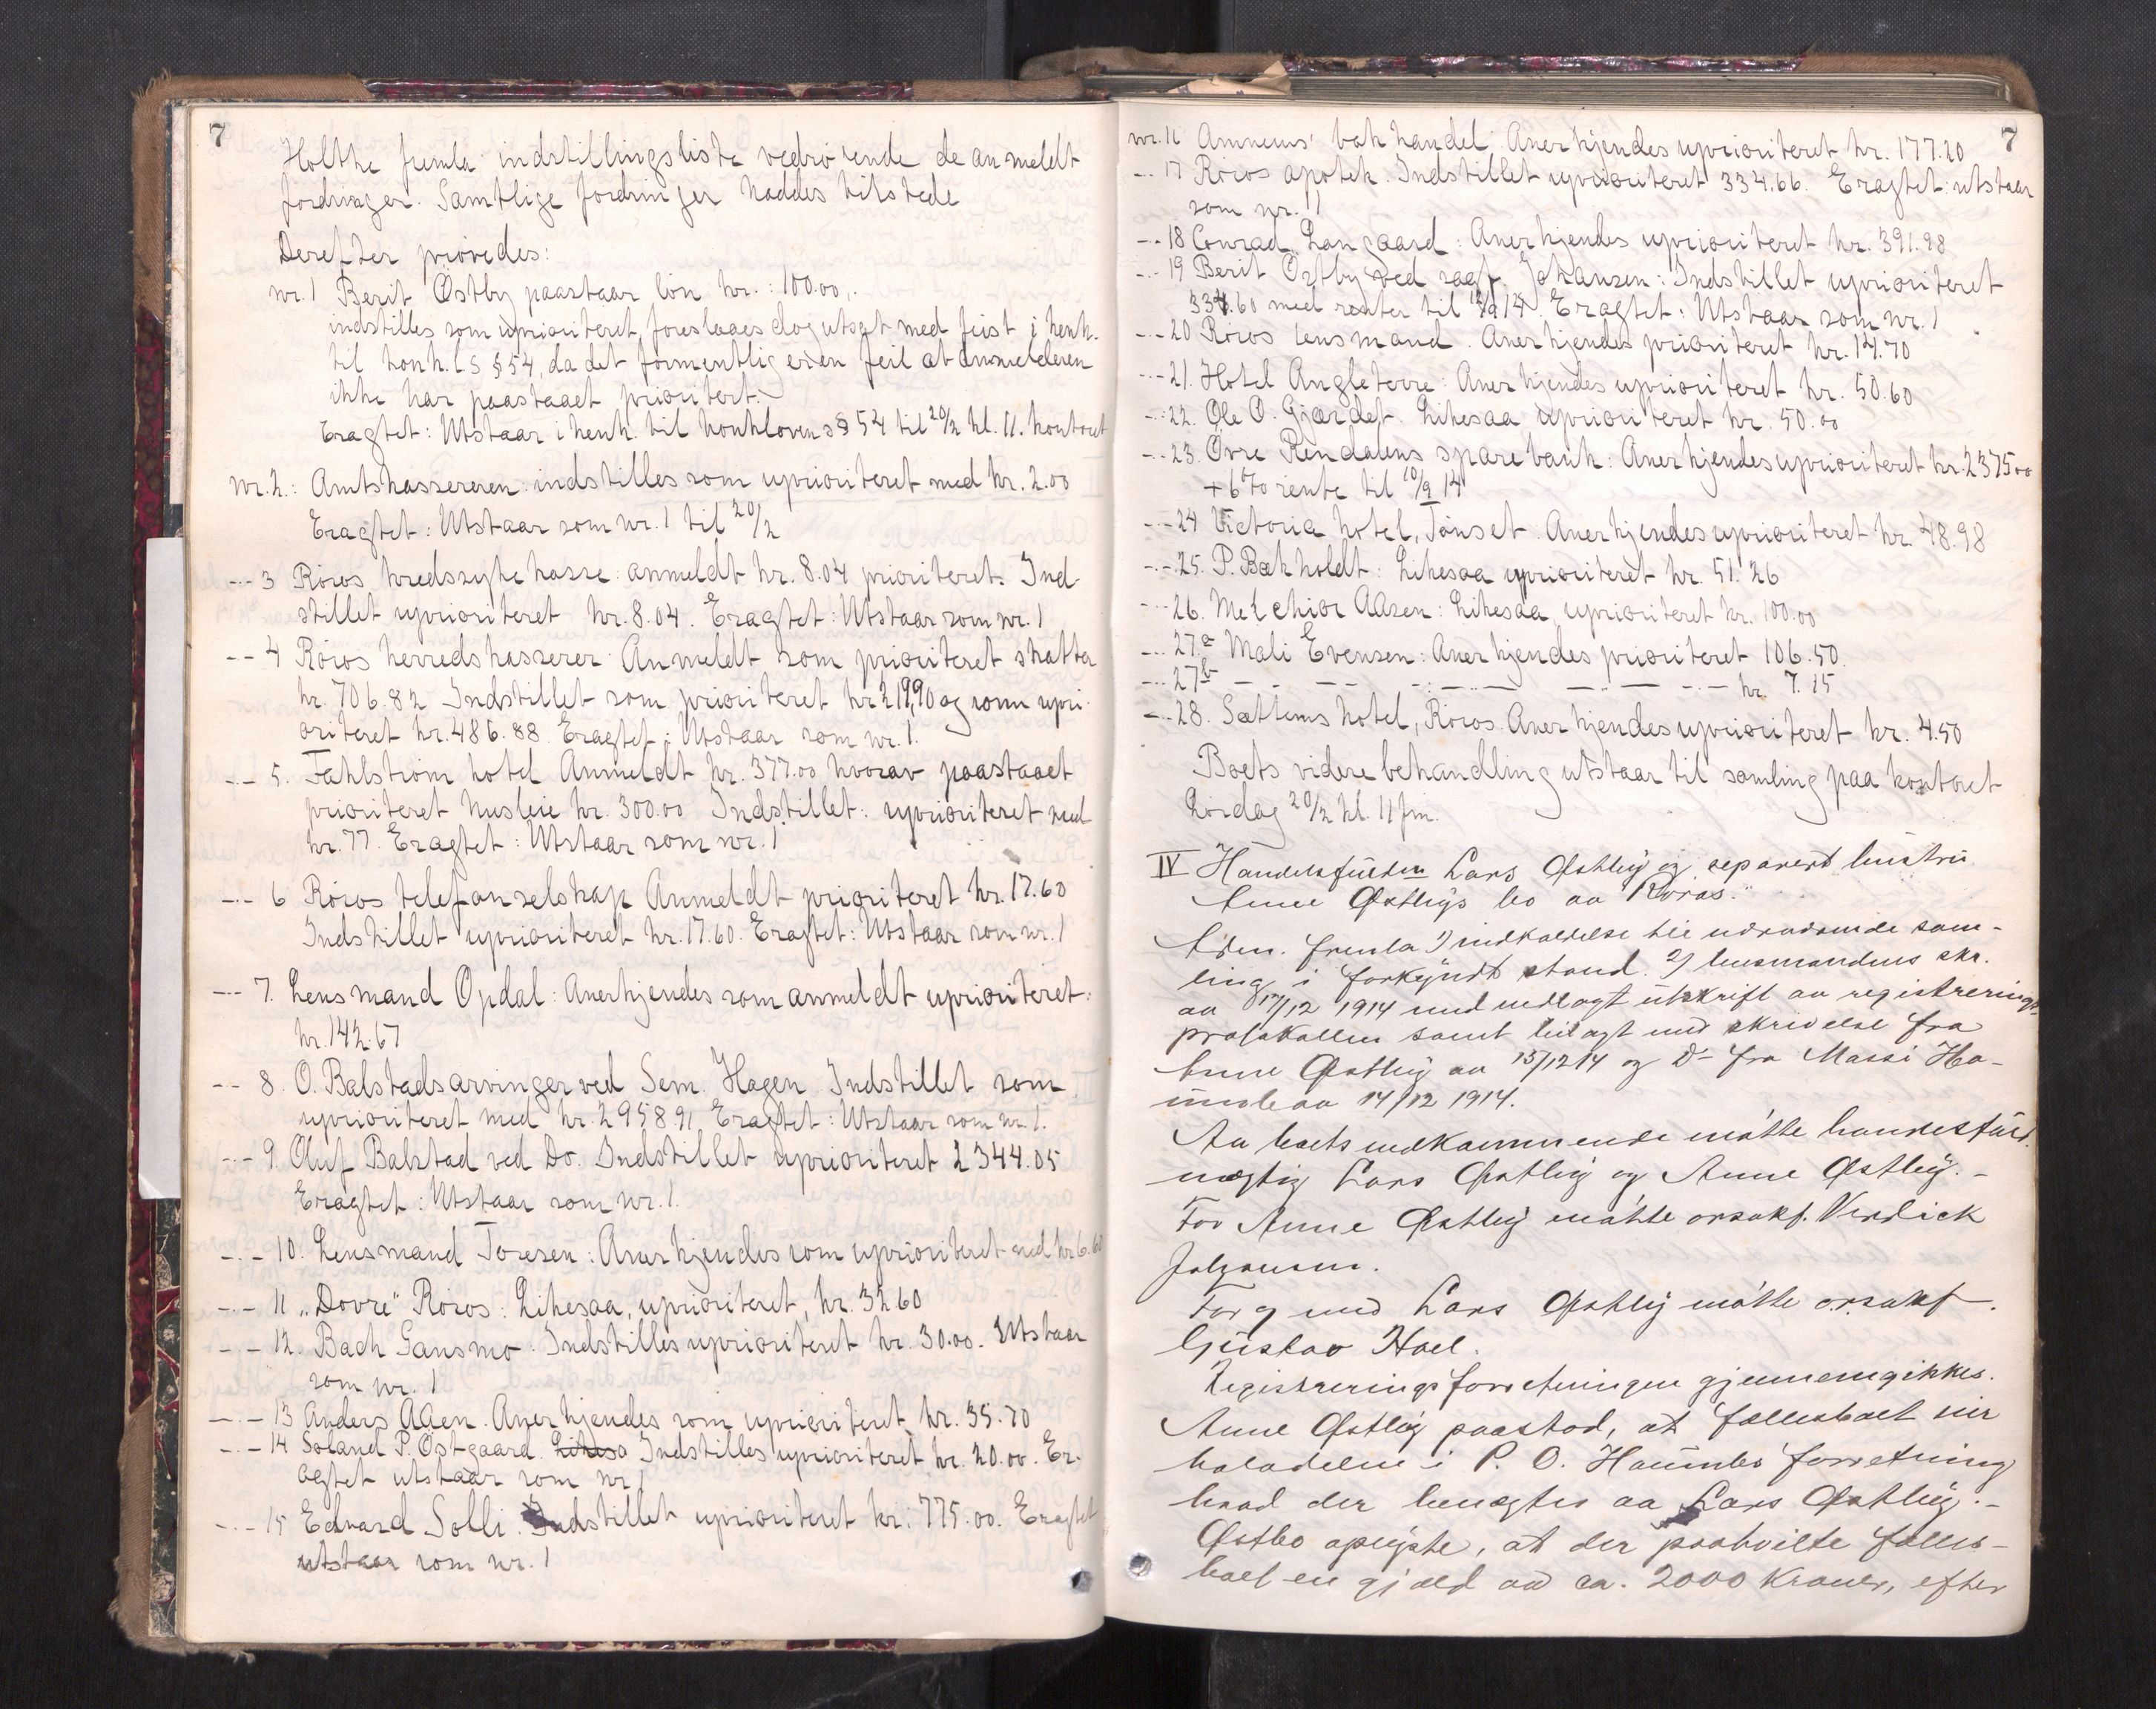 7
Holthe fremla indstillingsliste vedrørende de anmeldt
fordringer. Samtlige fordringer haddes tilstede
Derefter prøvedes:
nr. 1 Berit Østby paastaar løn kr.: 100.00,
indstilles som uprioriteret, foreslaaes dog utsat med frist i henh.
til konk. l s § 54, da det formentlig er en feil at anmelderen
ikke har paastaaet prioritert.
Eragtet: Utstaar i henh. til konkloven s § 54 til 20/2 kl. 11. kontoret
Nr. 2.: Amtskassereren indstilles som uprioriteret med kr. 2.00
Eragtet: Utstaar som nr. 1 til 20/2
-.- 3 Röros kredssykekasse anmeldt kr. 8.04 prioriteret. Ind-
stillet uprioriteret kr. 8.04. Eragtet: Utstaar som nr. 1
-.- 4 Röros herredskasserer Anmeldt som prioriteret skatter
kr. 706.82 Indstillet som prioriteret kr 219,90 og som upri-
oriteret kr. 486.88. Eragtet: Utstaar som nr. 1.
-.- 5. Fahlström hotel Anmeldt kr. 377.00 hvorav paastaaet
prioriteret husleie kr. 300.00 Indstillet: uprioriteret med
kr. 77. Eragtet: Utstaar som nr. 1
-.- 6 Röros telefonselskap Anmeldt prioriteret kr. 17.60
Indstillet uprioriteret kr. 17.60. Eragtet: Utstaar som nr. 1
-.- 7. Lensmand Opdal: Anerkjendes som anmeldt uprioriteret:
kr. 142.67
-.- 8. O. Balstads arvinger ved Sem. Hagen Indstillet som
uprioriteret med kr. 2958.91 Eragtet: Utstaar som nr. 1.
-.- 9. Oluf Balstad ved Do. Indstillet uprioriteret 2344.05
Eragtet: Utstaar som nr. 1.
-.- 10. Lensmand Toresen: Anerkjendes som uprioriteret med kr. 6.60
-.- 11 „Dovre" Röros: Likesaa, uprioriteret, kr. 32.60
-.- 12. Bach Gansmo. Indstilles uprioriteret kr. 30.00. Utstaar
som nr. 1
-.- 13 Anders Aaen. Anerkjendes som uprioriteret kr. 35.70
-.- 14 P. Östgaard. Likesa Indstilles uprioriteret kr. 20.00. Er-
agtet utstaar som nr 1
-.- 15 Edvard Solli. Indstillet uprioriteret kr. 775.00. Eragtet
utstaar som nr. 1
7
nr. 16 bokhandel Anerkjendes uprioriteret kr. 177.20
-.- 17 Röros apotek. Indstillet uprioriteret 334.66. Eragtet: utstaar
som nr. 1
-.- 18 Conrad Langaard: Anerkjendes uprioriteret kr. 391.98
-.- 19 Berit Östby ved sagf. Johansen: Indstillet uprioriteret
.60 med renter til Eragtet: Utstaar som nr. 1
-.- 20 Röros lensmand. Anerkjendes prioriteret kr. 14.70
-.- 21. Hotel Angleterre: Anerkjendes uprioriteret kr. 50.60
-.- 22. Ole O. Gjærdet. Likesaa uprioriteret kr. 50.00
-.- 23. Övre Rendalens sparebank: Anerkjendes uprioriteret kr. 2375.00
+ 6 % rente til 10/9 14
-.- 24 Victoria hotel, Tönset. Anerkjendes uprioriteret kr. 48.98
-.- 25. P. Bækholdt: Likesaa uprioriteret kr. 51.26
-.- 26. Melchior Aasen: Likesaa uprioriteret kr. 100.00
-.- 27a Mali Evensen: Anerkjendes prioriteret 106.50.
-.- 27b -.- -.- -.- kr. 7.15
-.- 28. Sættems hotel, Röros. Anerkjendes uprioriteret kr. 4.50
Boets videre behandling utstaar til samling paa kontoret
Lördag 20/2 kl. 11 fm.
IV Handelsfuldm Lars Østby og separert hustru
Anne Østbys bo av Røros.
Adm. fremla 1) indkaldelse til nærværende sam-
ling i forkyndt stand. 2) lensmandens skr.
av 17/12 1914 med vedlagt utskrift av registrerings-
protokollen samt bilagt med skrivelse fra
Anne Østby av 15/12 14 og Do fra Massi Ha-
av 14/12 1914.
Av boets vedkommende møtte handelsfuld-
mægtig Lars Østby og Anne Østby. -
For Anne Østby møtte orsakf. Verdick
Johansen.
For og med Lars Østby møtte orsakf.
Gustav Hoel.
Registreringsforretningen gjennemgikkes.
Anne Østby paastod, at fællesboet eier
halvdelen i P. O. forretning
hvad der benegtes av Lars Østby. -
Østbo oplyste, at der paahvilte fælles-
boet en gjæld av ca. 2000 kroner, efter